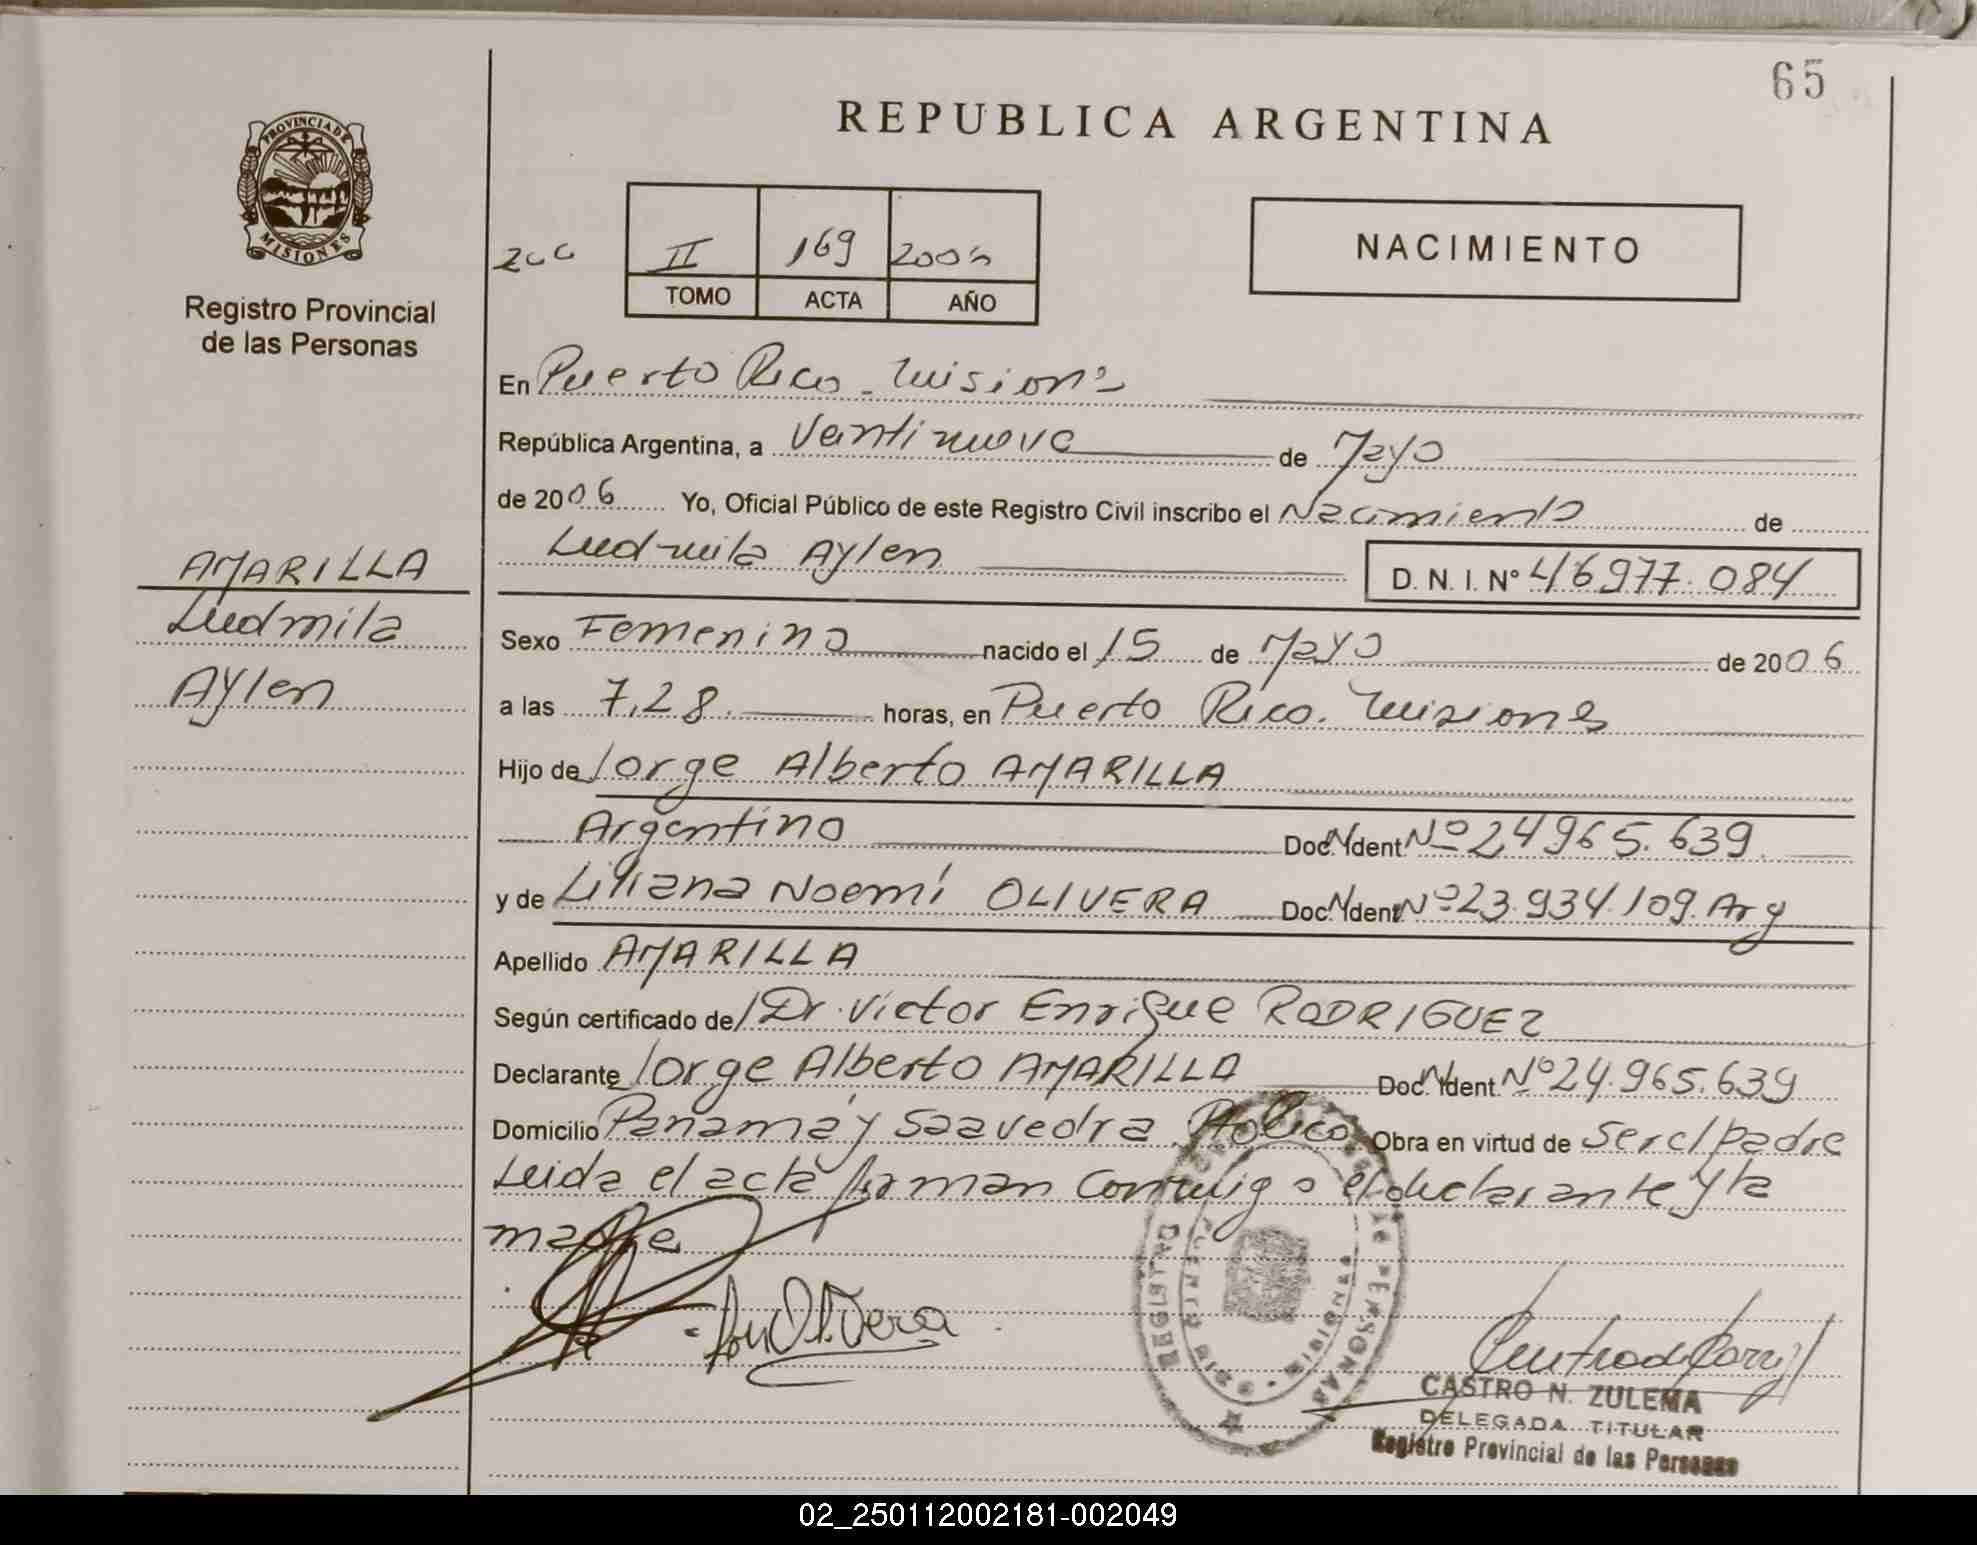 65
REPUBLICA ARGENTINA
PROVINCIA DE
MISIONES
Registro Provincial
de las Personas
II 169
TOMO ACTA AÑO
NACIMIENTO
En Puerto Rico - Misiones
República Argentina, a Ventinueve de Mayo
de 2006 Yo, Oficial Público de este Registro Civil inscribo el Nacimiento de
Ludmila Aylen D. N. I. N° 46977.084
AMARILLA
Ludmila
Aylen
Sexo Femenino nacido el 15 de Mayo de 2006
a las 7,28 horas, en Puerto Rico. Misiones
Hijo de Jorge Alberto AMARILLA
Argentino Doc. Ident. Nº 24965.639
y de Liliana Noemí OLIVERA Doc. Ident Nº 23.934.109. Arg
Apellido AMARILLA
Según certificado de Dr. Victor Enrique RODRIGUEZ
Declarante Jorge Alberto AMARILLA Doc. Ident. Nº 24.965.639
Domicilio Panamá y Saavedra Pto Rico Obra en virtud de Ser el padre
Leida el acta firman conmigo el declarante y la
madre
Olivera
CASTRO N. ZULEMA
DELEGADA TITULAR
Registro Provincial de las Personas
02_250112002181-002049